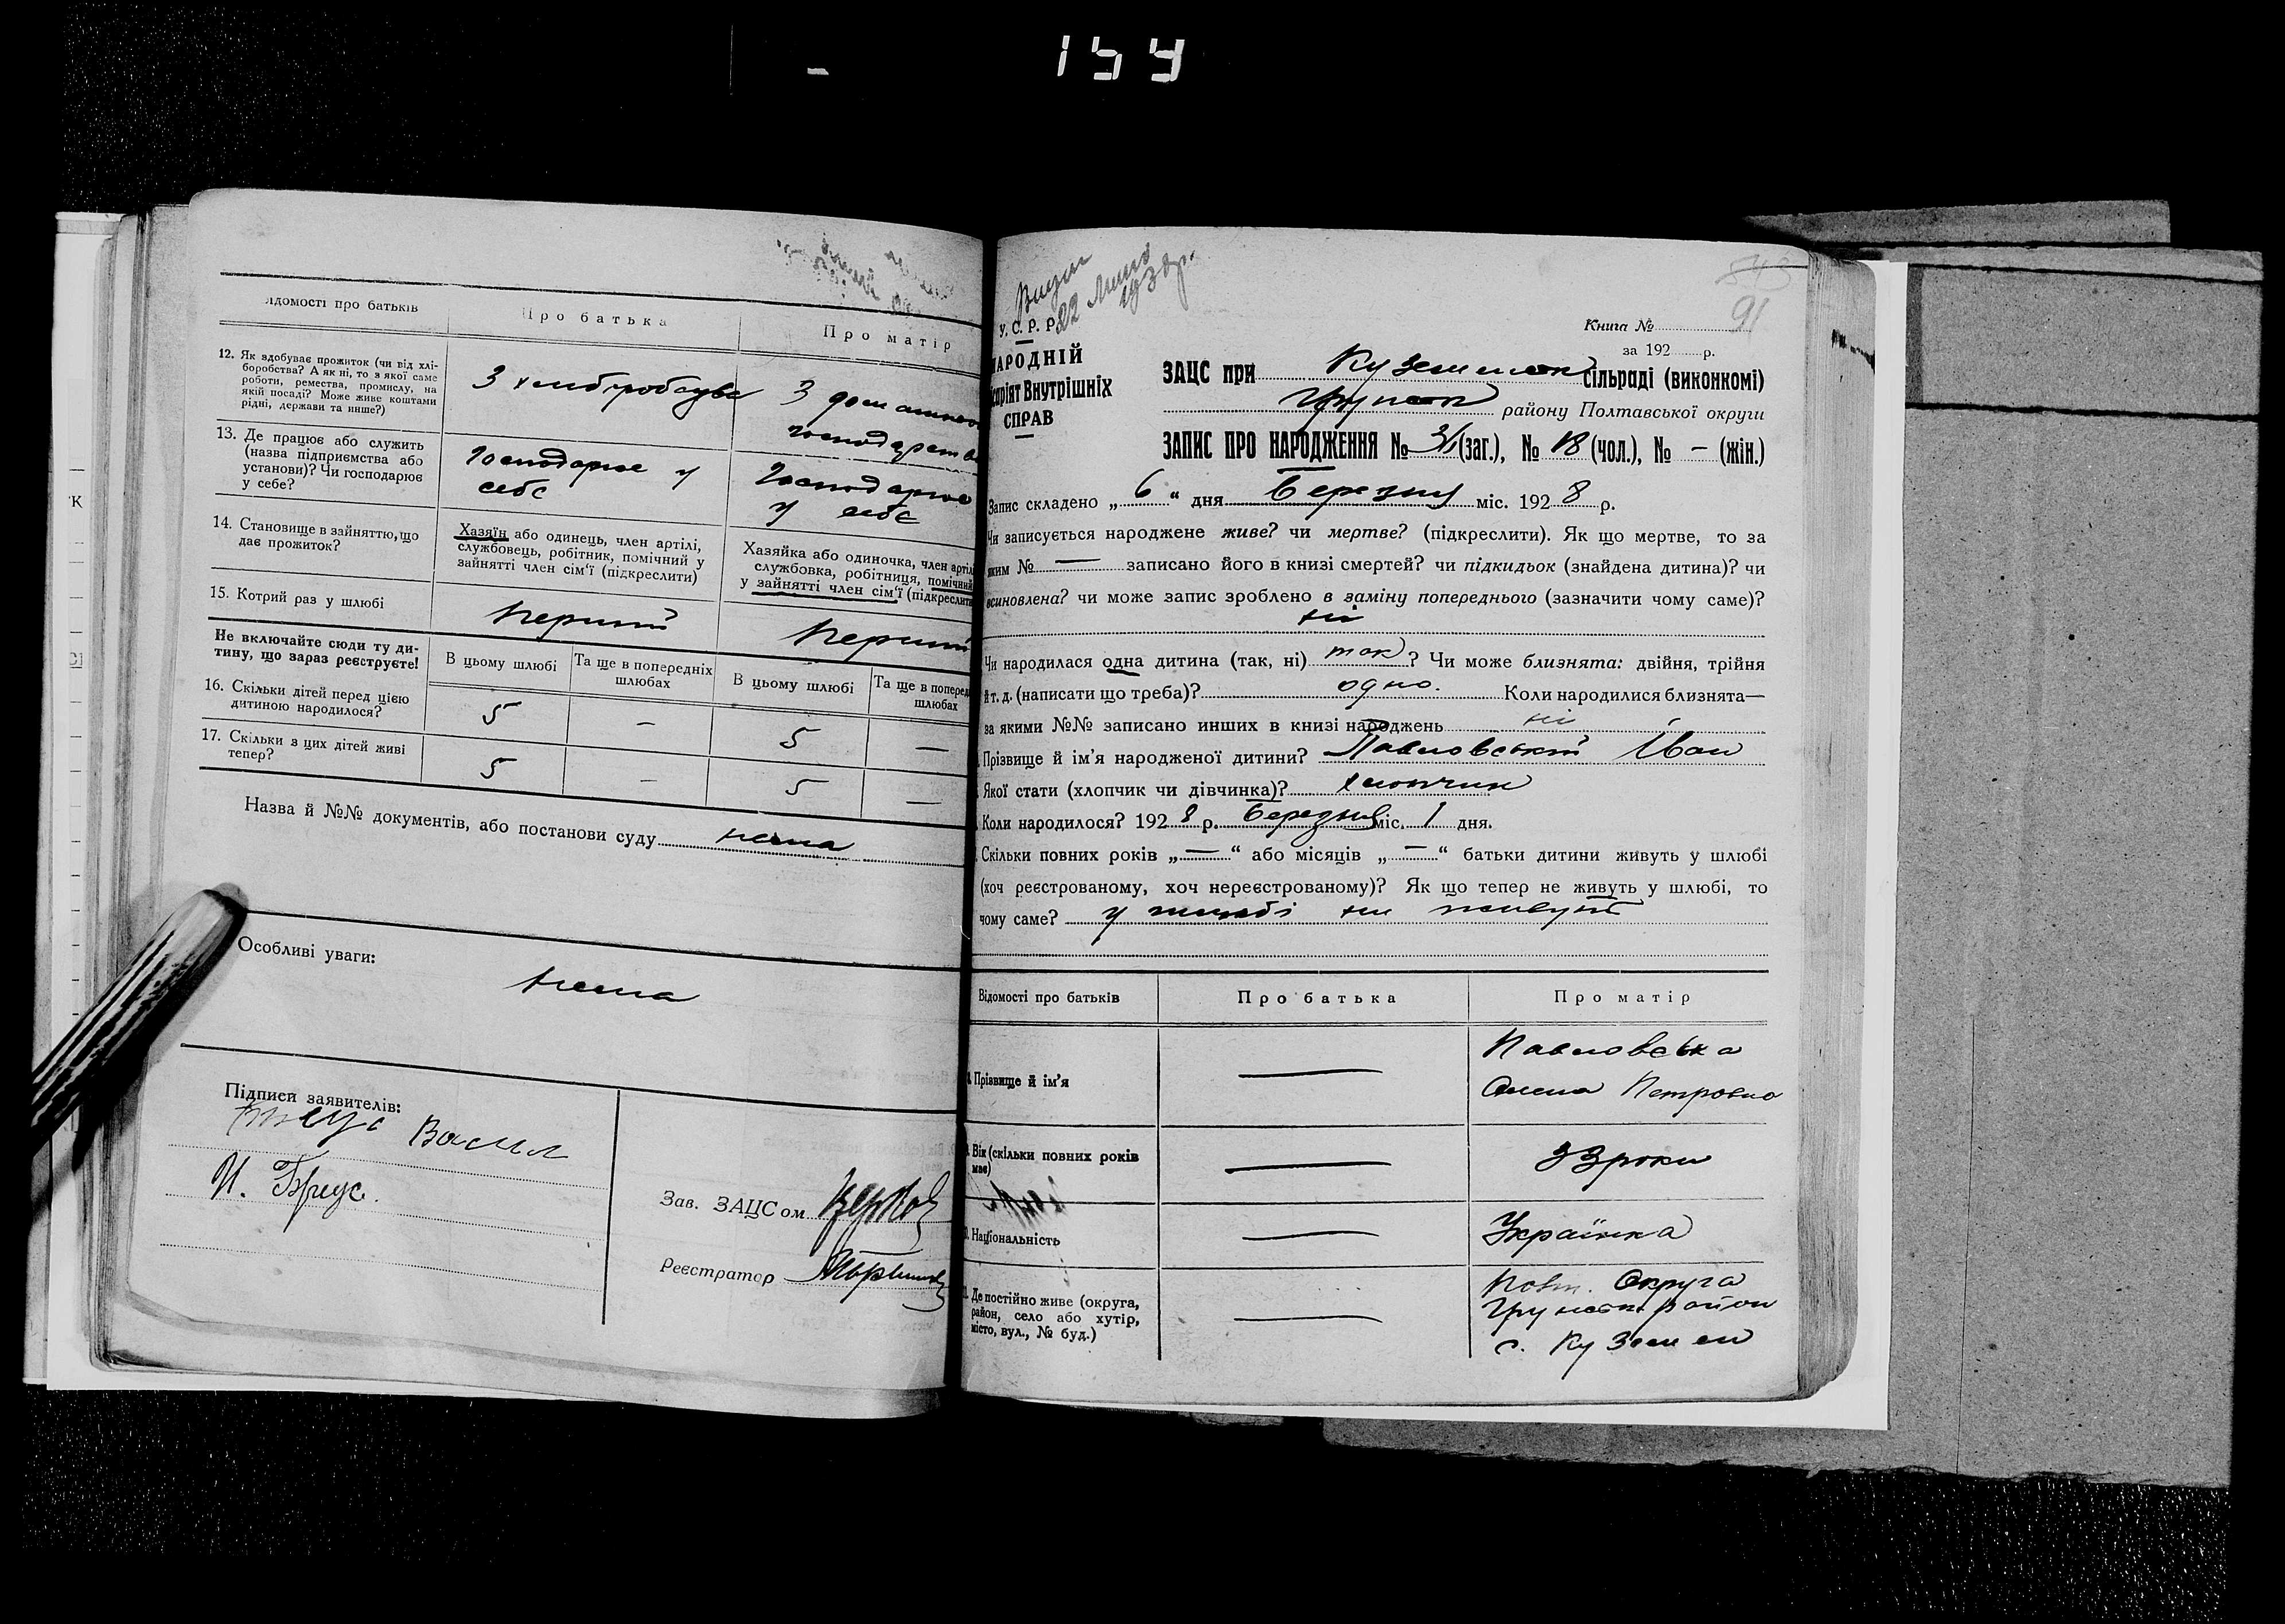 159
ідомості про батьків
Про батька
Про матір
12. Як здобуває прожиток (чи від хлі-
боробства? А як ні, то з якої саме
роботи, ремества, промислу, на
якій посаді? Може живе коштами
рідні, держави та инше?)
З хліборобства
З домашнього
господарства
13. Де працює або служить
(назва підприємства або
установи)? Чи господарює
у себе?
Господарює у
себе
Господарює
у себе
14. Становище в зайняттю, що
дає прожиток?
Хазяїн або одинець, член артілі,
службовець, робітник, помічний у
зайнятті член сім'ї (підкреслити)
Хазяйка або одиночка, член артіл
службовка, робітниця, помічний
у зайнятті член сім'ї (підкреслити
15. Котрий раз у шлюбі
перший
перший
Не включайте сюди ту ди-
тину, що зараз реєструєте!
В цьому шлюбі
Та ще в попередніх
шлюбах
В цьому шлюбі
Та ще в поперед
шлюбах
16. Скільки дітей перед цією
дитиною народилося?
5 – 5 –
17. Скільки з цих дітей живі
тепер?
5 – 5 –
Назва й №№ документів, або постанови суду нема
Особливі уваги:
нема
Підписи заявителів:
Василь
И. Бриус.
Зав. ЗАЦСом
Реєстратор
22
У. С. Р. Р.
НАРОДНІЙ
сарія́т Внутрішніх
СПРАВ
543
91
Книга №
за 192 р.
ЗАЦС при Куземин сільраді (виконкомі)
Грунськ району Полтавської округи
ЗАПИС ПРО НАРОДЖЕННЯ № 31 (заг.), № 18 (чол.), № – (жін.)
Запис складено „ 6 “ дня Березня міс. 192 8 р.
Чи записується народжене живе? чи мертве? (підкреслити). Як що мертве, то за
яким № — записано його в книзі смертей? чи підкидьок (знайдена дитина)? чи
всиновлена? чи може запис зроблено в заміну попереднього (зазначити чому саме)?
ні
Чи народилася одна дитина (так, ні) так? Чи може близнята: двійня, трійня
й т. д. (написати що треба)? одно. Коли народилися близнята—
за якими №№ записано инших в книзі народжень ні
Прізвище й ім'я народженої дитини? Павловський Іван
Якої стати (хлопчик чи дівчинка)? хлопчик
Коли народилося? 192 8 р. Березня міс. 1 дня.
Скільки повних років „ — “ або місяців „ — “ батьки дитини живуть у шлюбі
(хоч реєстрованому, хоч нереєстрованому)? Як що тепер не живуть у шлюбі, то
чому саме? у шлюбі ни живуть
Відомості про батьків
Про батька
Про матір
Прізвище й ім'я
—
Павловська
Олена Петровна
Вік (скільки повних років
має)
—
33 роки
Національність
—
Українка
Де постійно живе (округа,
район, село або хутір,
місто, вул., № буд.)
—
Полт. Округа
Грунськ. район
с. Куземен